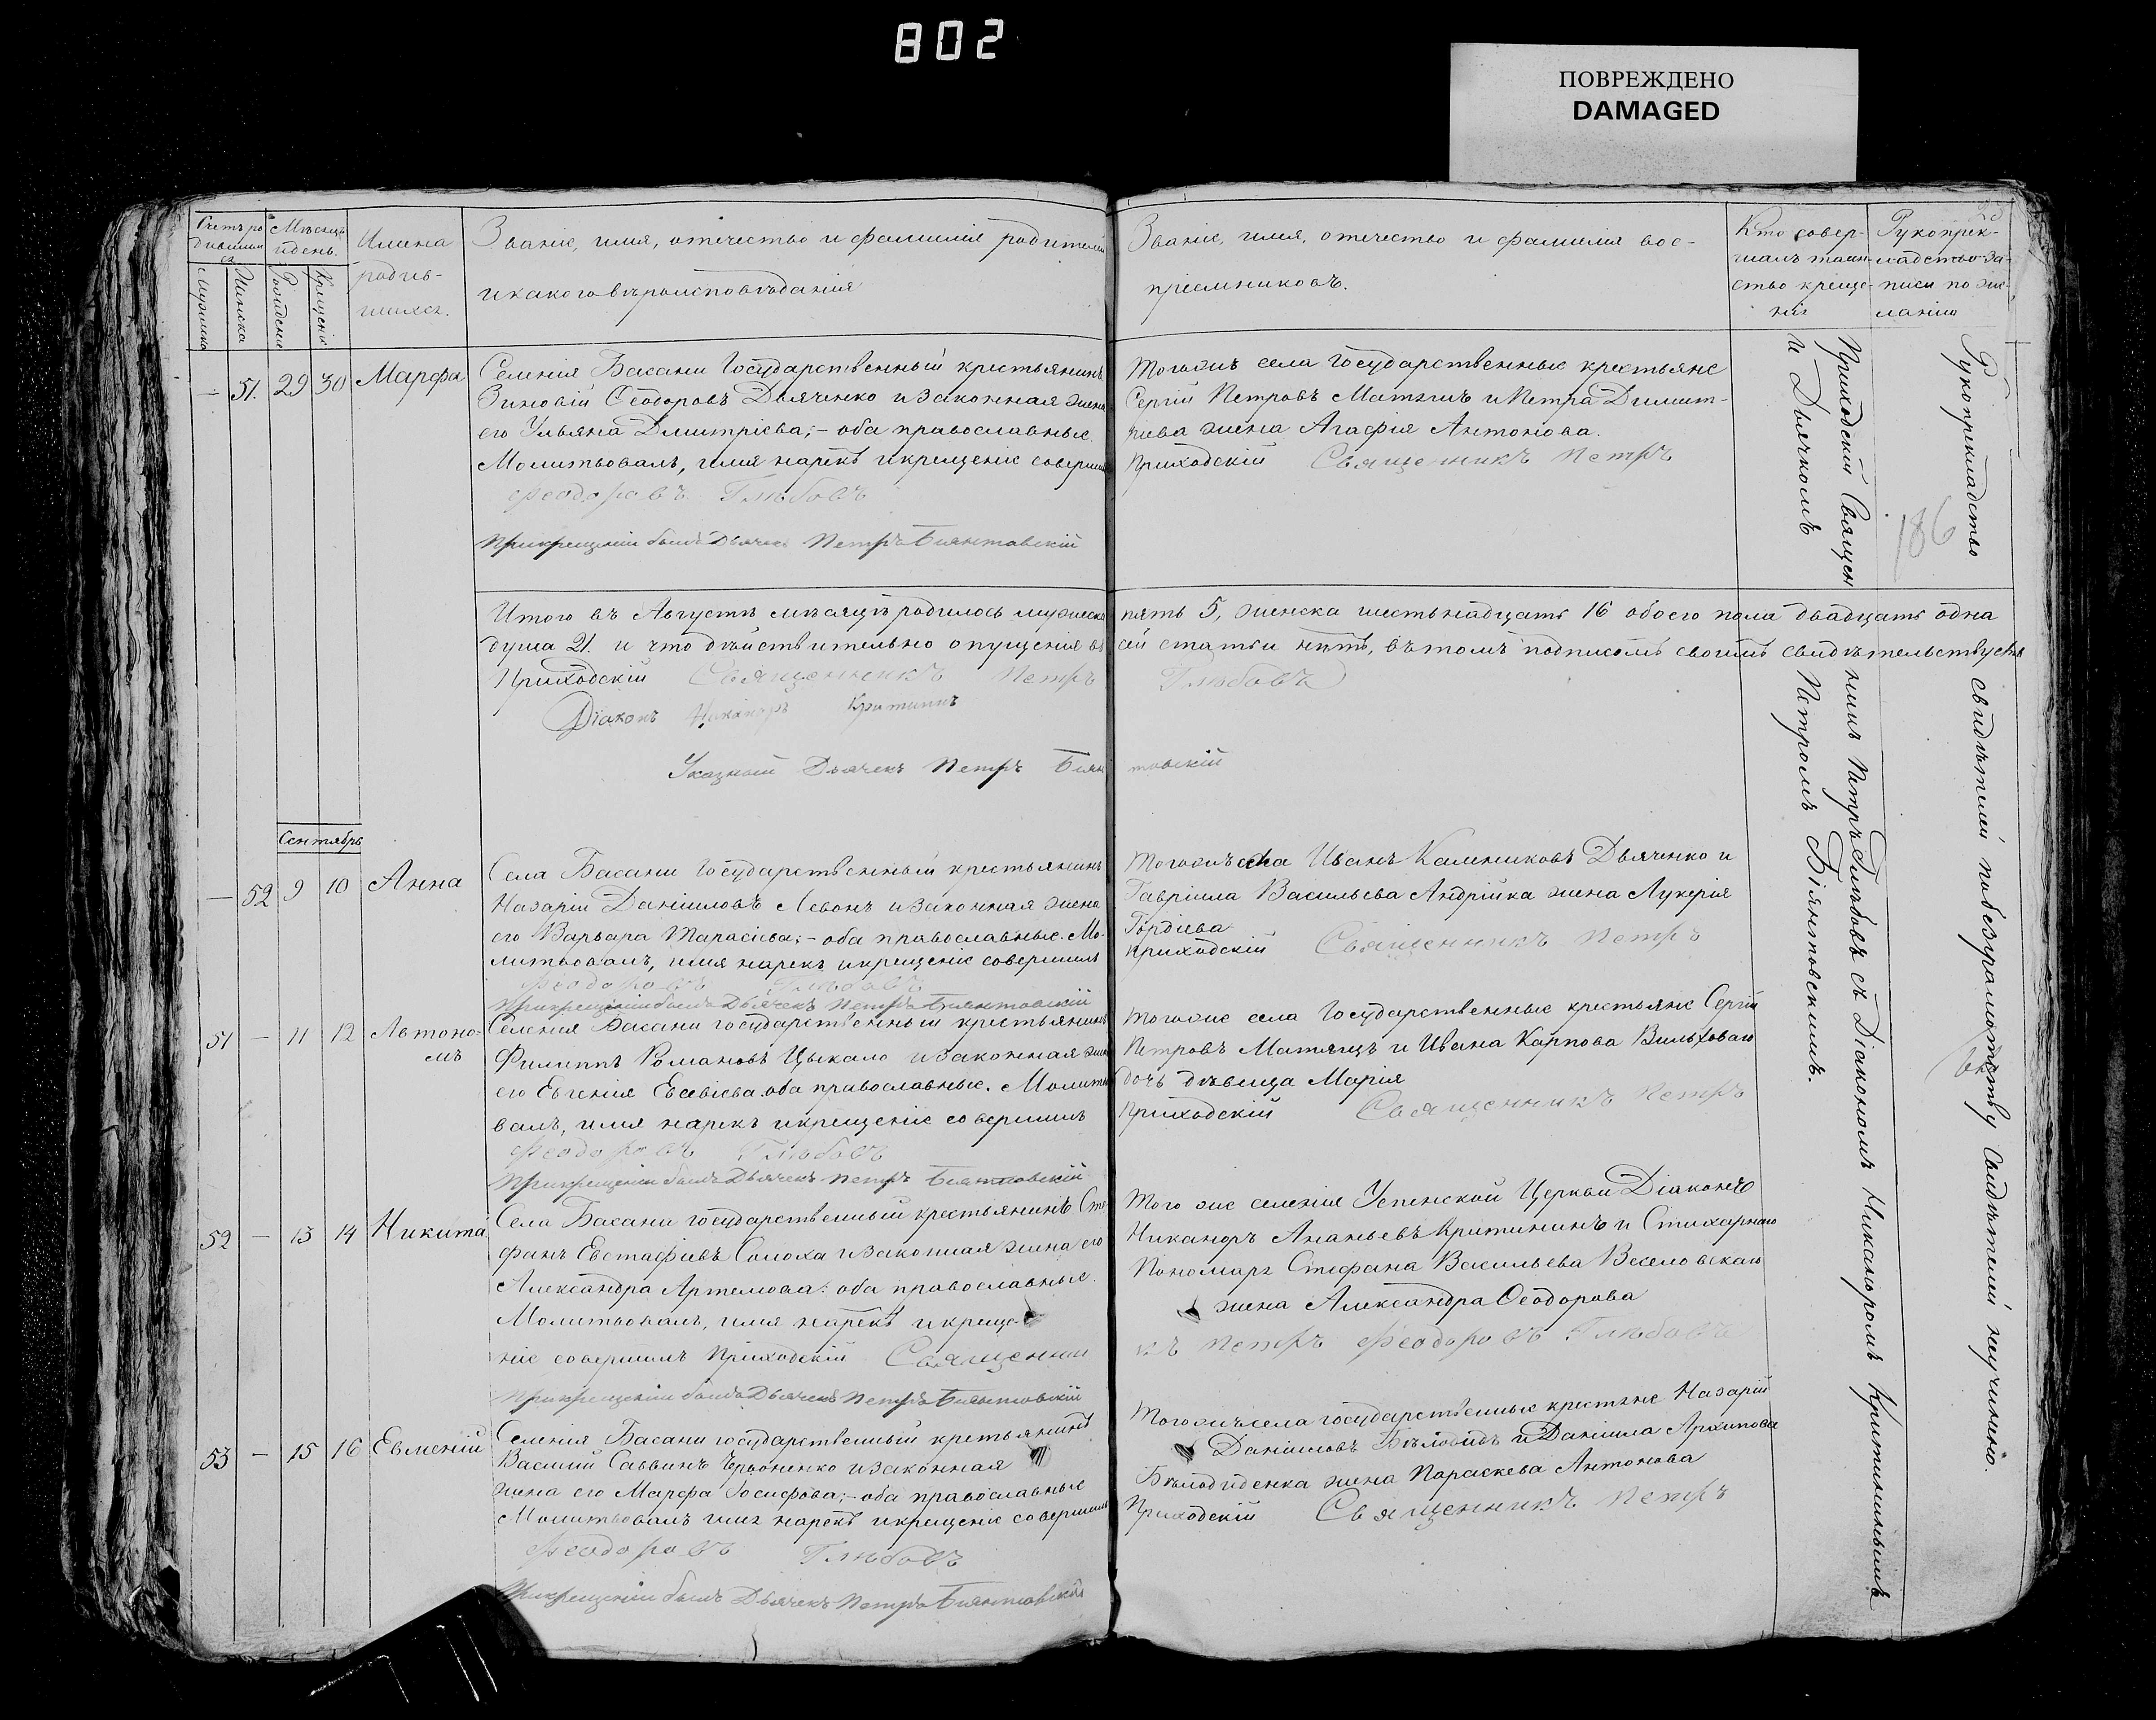 802
ПОВРЕЖДЕНО
DAMAGED
Счетъ ро
дивших
ся
Мужеска
Женска
Мѣсяцъ
и день.
Рожденіе
Крещеніе
Имена
родив-
шихся.
Званіе, имя, отчество и фамилія родителей
и какого вѣроисповѣданія
Званіе, имя, отчество и фамилія вос-
пріемниковъ.
Кто совер-
шалъ таин-
ство креще-
нія
Рукоприк-
ладство за-
писи по же-
ланію
— 51. 29 30 Марфа
Селенія Басани Государственный крестьянинъ
Зиновій Ѳеодоровъ Дьяченко и законная жена
его Ульяна Дмитріева; – оба православные.
Молитвовалъ, имя нарекъ и крещеніе совершилъ
Феодоровъ Глѣбовъ
При крещеніи былъ Дьячекъ Петръ Бѣянтовскій
Тогожъ села государственные крестьяне
Сергій Петровъ Матяшъ и Петра Димит-
ріева жена Агафія Антонова.
Приходскій Священникъ Петръ
186
Итого въ Августѣ мѣсяцѣ родилось мужеска пять 5, женска шестьнадцать 16 обоего пола двадцать одна
душа 21. и что дѣйствительно опущенія въ сей статьи нѣтъ, въ томъ подписомъ своимъ свидѣтельствуемъ
Приходскій Священникъ Петръ Глѣбовъ
Діаконъ Никаноръ Критининъ
Указный Дьячекъ Петръ Біянтовскій
Сентябрь
— 52 9 10 Анна
Села Басани Государственный крестьянинъ
Назарій Даніиловъ Левонъ и законная жена
его Варвара Тарасіева; – оба православные. Мо-
литвовалъ, имя нарекъ и крещеніе совершилъ
Феодоровъ Глѣбовъ
При крещеніи былъ Дьячекъ Петръ Біянтовскій
Тогожъ села Иванъ Калениковъ Дьяченко и
Гавріила Васильева Андрійка жена Лукерія
Гордіева
Приходскій Священникъ Петръ
51 — 11 12 Автоно-
мъ
Селенія Басани государственный крестьянинъ
Филиппъ Романовъ Цыкало и законная жена
его Евгенія Евсевіева оба православные. Молитво
валъ, имя нарекъ и крещеніе совершилъ
Феодоровъ Глѣбовъ
При крещеніи былъ Дьячекъ Петръ Біянтовскій
Тогоже села Государственные крестьяне Сергій
Петровъ Матяшъ и Ивана Карпова Вильховаго
дочь дѣвица Марія
Приходскій Священникъ Петръ
52 — 13 14 Никита
Села Басани государственный крестьянинъ Сте
фанъ Евстафіевъ Солоха и законная жена его
Александра Артемова: оба православные.
Молитвовалъ, имя нарекъ и креще-
ніе совершилъ Приходскій Священни
При крещеніи былъ Дьячекъ Петръ Біянтовскій
Того же селенія Успенской Церкви Діаконъ
Никаноръ Ананьевъ Критининъ и Стихарнаго
Пономаря Стефана Васильева Веселовскаго
жена Александра Ѳеодорова
къ Петръ Феодоровъ Глѣбовъ
53 — 15 16 Евменій
Селенія Басани государственный крестьянинъ
Василій Саввинъ и законная
жена его Марфа Іосифова; – оба православные
Молитвовалъ имя нарекъ и крещеніе совершилъ
Феодоровъ Глѣбовъ
При крещеніи былъ Дьячекъ Петръ Біянтовскій
Тогожъ села государственные крестяне Назарій
Даніиловъ и Даніила Архипова
жена Параскева Антонова
Приходскій Священникъ Петръ
Приходскій Священникъ Петръ Глѣбовъ съ Діакономъ Никаноромъ Критининымъ
И Дьячкомъ Петромъ Біянтовскимъ.
Рукоприкладство свидѣтелей по безграмотству свидѣтелей неучинено.